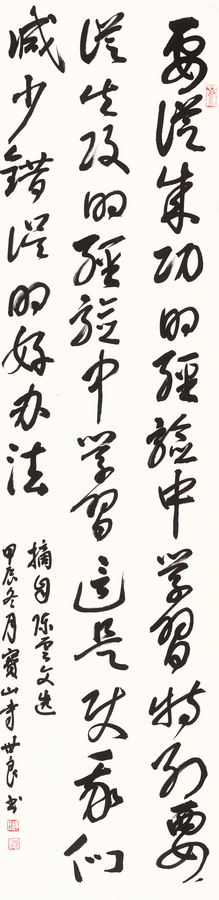 要從成功的經驗中學習特別要
從失敗的經驗中學習這是使我們
減少錯誤的好办法
摘自陈雲文选
甲辰冬月寶山寺世良书